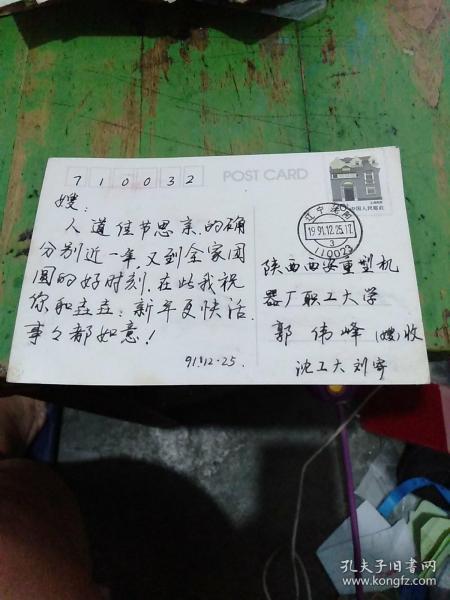 710032
POST CARD
中国人民邮政
辽宁沈阳
1991.12.25.17
3
110023
嫂：
人道佳节思亲的确
分别近一年，又到全家团
圆的好时刻，在此我祝
你和垚垚：新年更快活
事々都如意！
91.12.25.
陕西西安重型机
器厂职工大学
郭伟峰（嫂）收
沈工大刘寄
孔夫子旧书网
www.kongfz.com